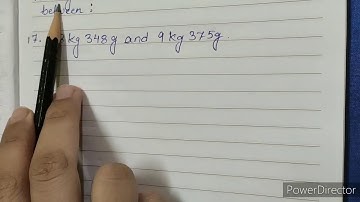 between :
17. kg 348g and 9 kg 375g.
PowerDirector